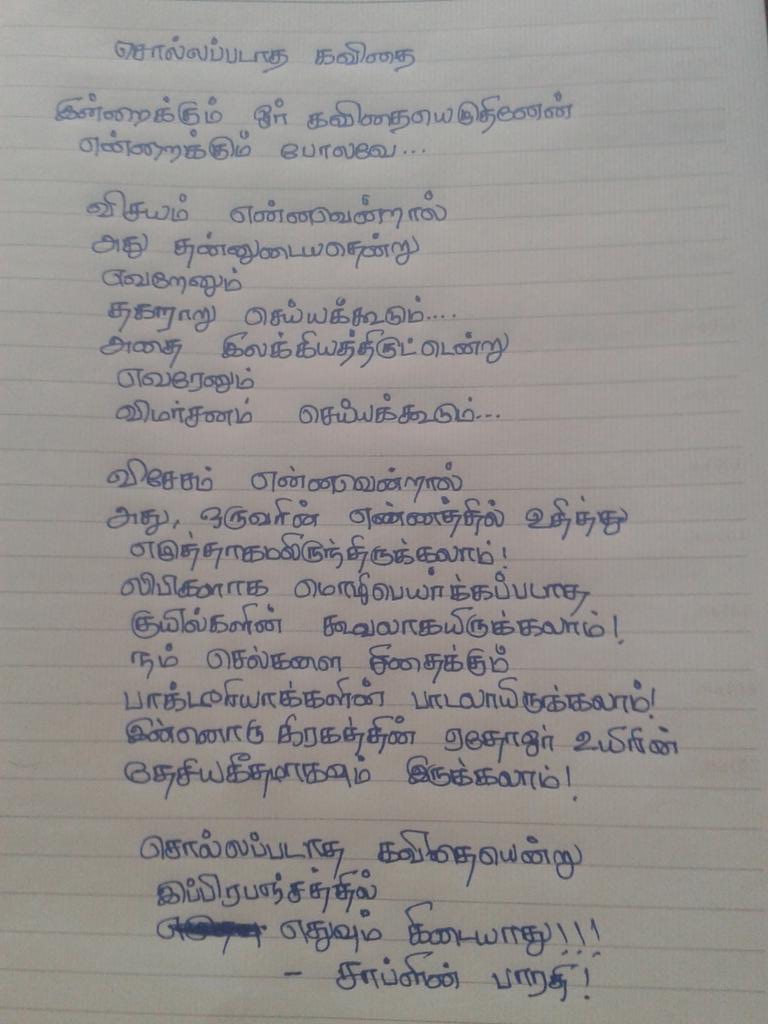 சொல்லப்படாத கவிதை
இன்றைக்கும் ஓர் கவிதையெழுதினேன்
என்றைக்கும் போலவே...
விசயம் என்னவென்றால்
அது தன்னுடையதென்று
எவரேனும்
தகராறு செய்யக்கூடும்....
அதை இலக்கியத்திருட்டென்று
எவரேனும்
விமர்சனம் செய்யக்கூடும்...
விசேசம் என்னவென்றால்
அது, ஒருவரின் எண்ணத்தில் உதித்து
லிபிகளாக மொழிபெயர்க்கப்படாத
குயில்களின் கூவலாகயிருக்கலாம்!
நம் செல்களை சிதைக்கும்
பாக்டீரியாக்களின் பாடலாயிருக்கலாம்!
இன்னொரு கிரகத்தின் ஏதோஓர் உயிரின்
தேசியகீதமாகவும் இருக்கலாம்!
சொல்லப்படாத கவிதையென்று
இப்பிரபஞ்சத்தில்
எதுவும் கிடையாது!!!
- சாப்ளின் பாரதி!